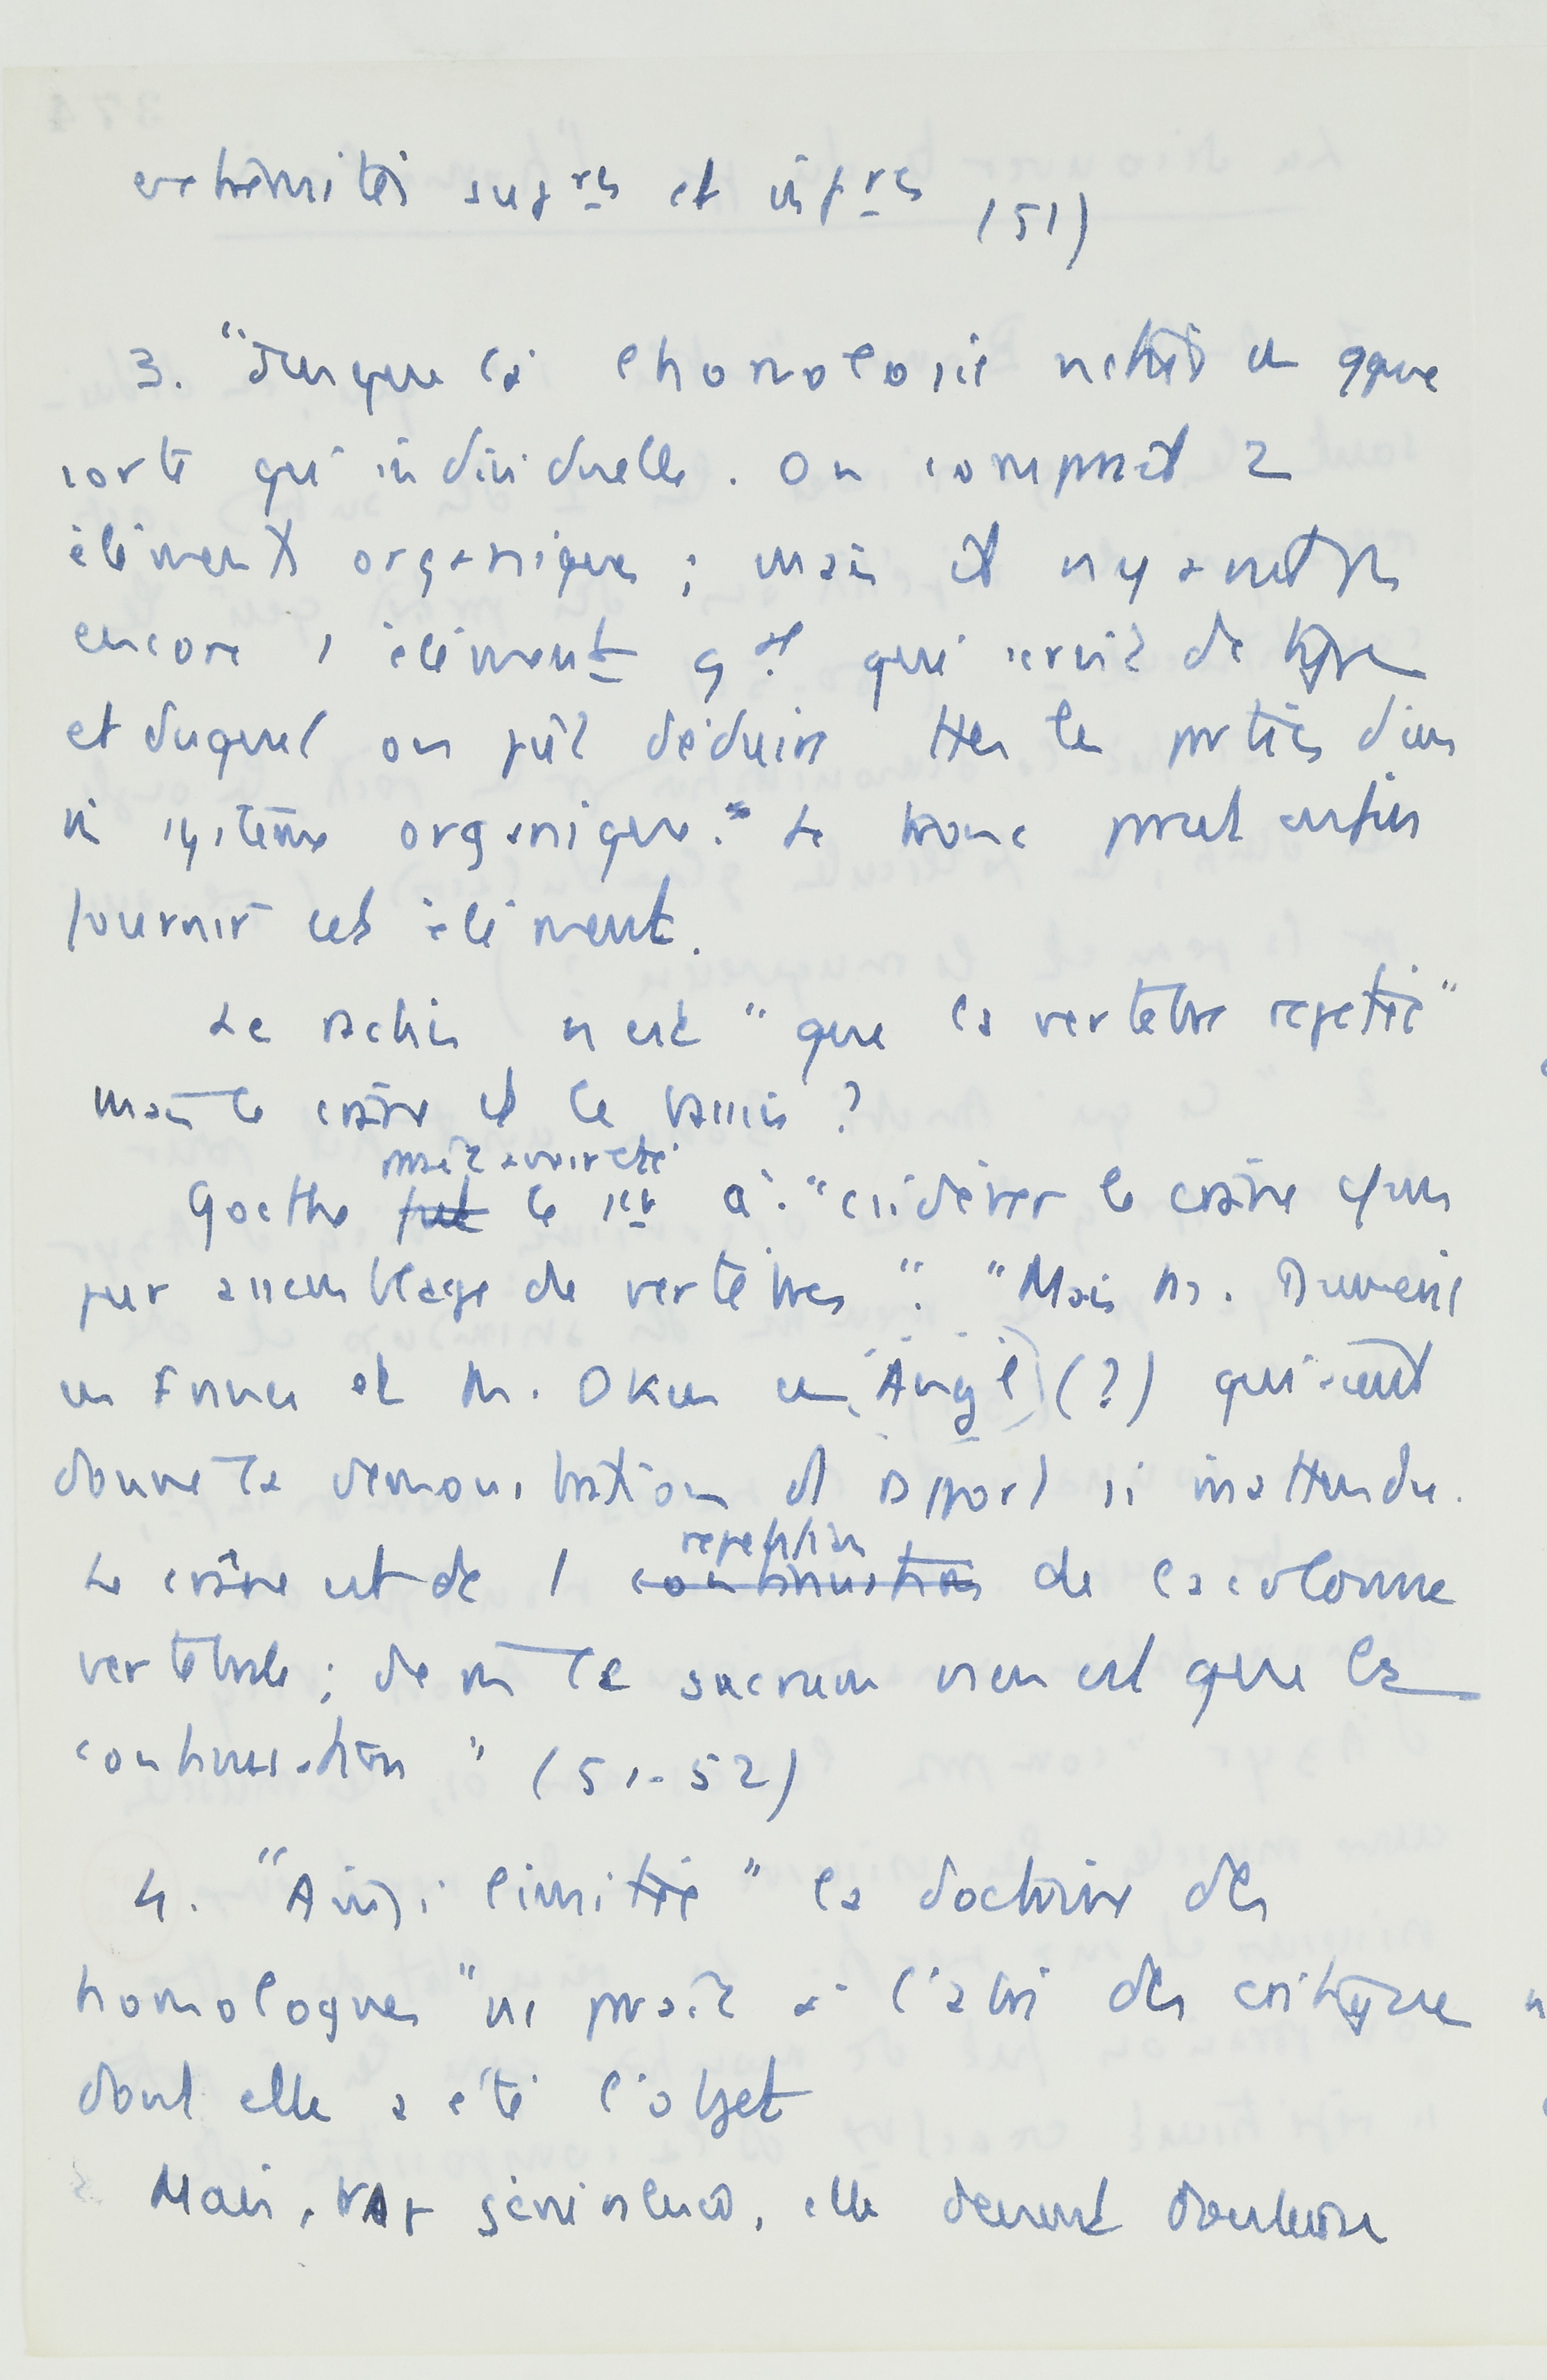 extrémités sup^res et inf^res (51)
3. "Jusque là l'homologie n'était en qque
sorte qu'individuelle. On comparait 2
éléments organiques ; mais il n'y avait pas
encore 1 élément g^al qui servit de type
et duquel on pût déduire ttes les parties d'un
m̂ système organique." Le tronc parut enfin
fournir cet élément.
Le rachis n'est "que la vertèbre répétée"
mais le crâne et le bassin ?
paraît avoir été
Goethe fut le 1er à "considérer le crâne c/ un
pur assemblage de vertèbres". "Mais M. Duméril
en France et M. Oken en Angl (?) qui avait
donné la démonstration d' rapport si inattendu.
répétition
Le crâne est dc 1 continuation de la colonne
vertébrale ; de m̂ le sacrum n'en est que la
continuation" (51-52)
4. "Ainsi limitée" la doctrine des
homologues "me paraît à l'abri des critiques
dont elle a été l'objet
Mais, trop généralisée, elle devient douteuse